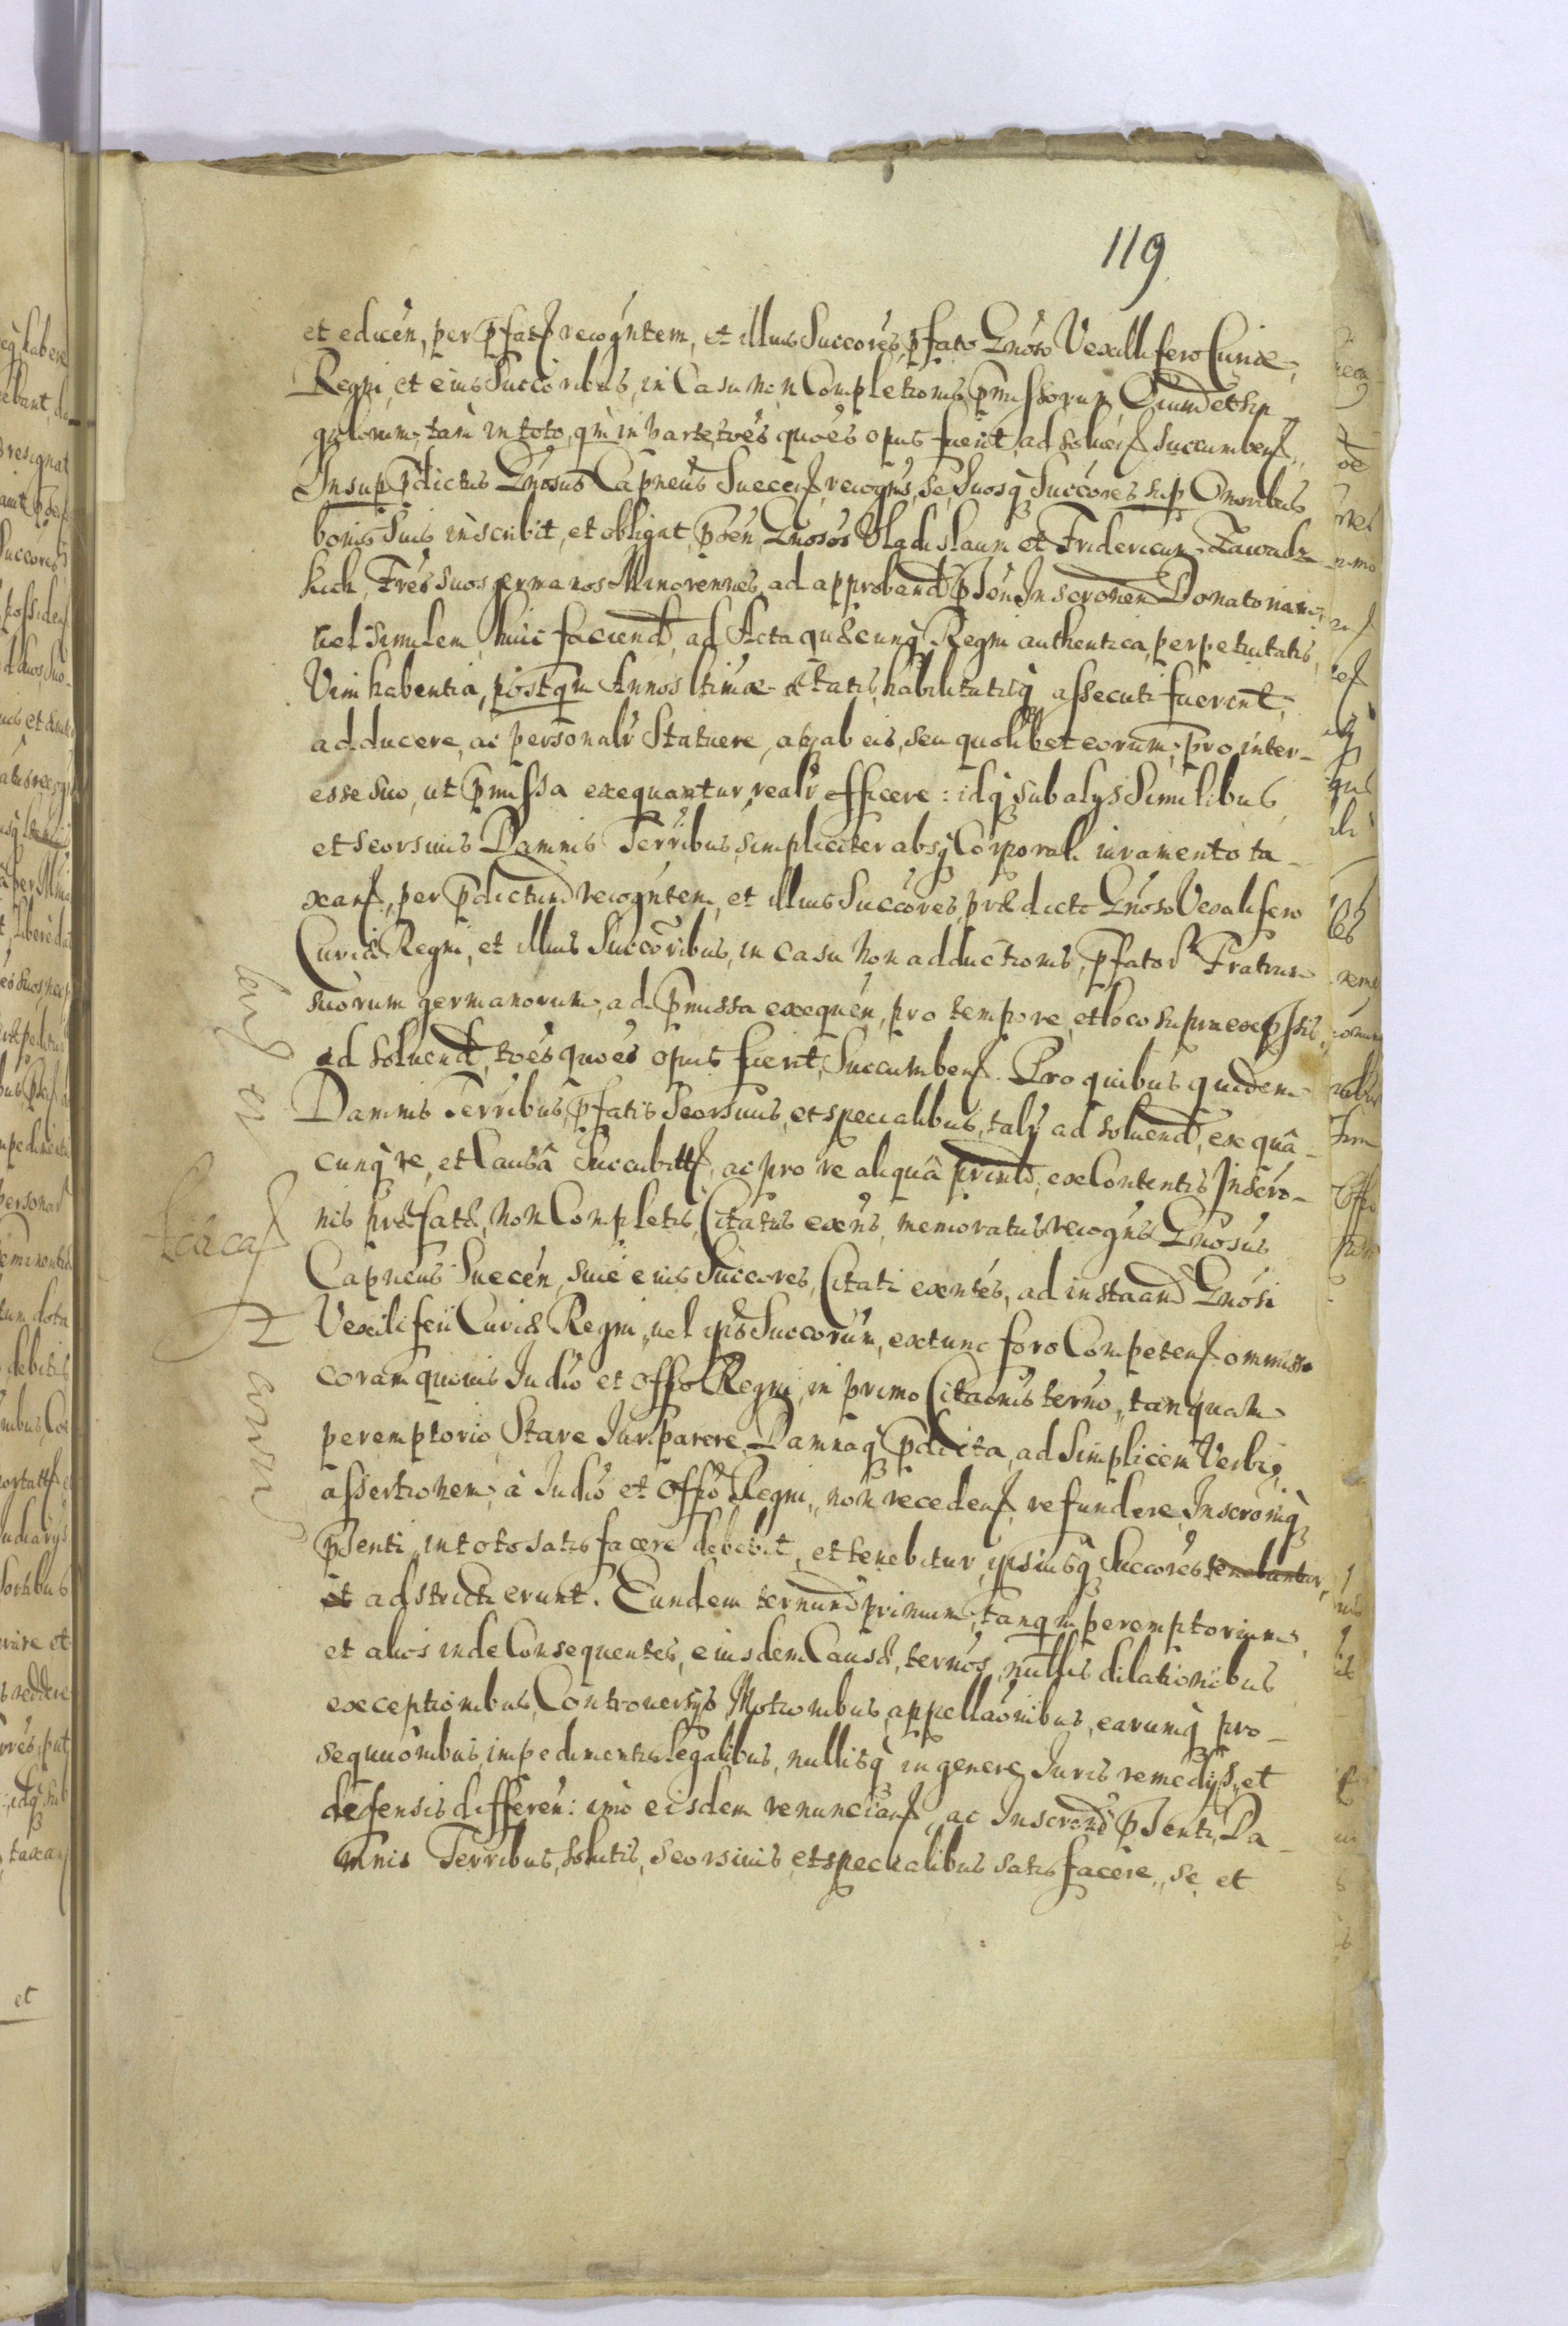 119
et edicen, per pfatı recogntem, et illius Succores, pfato Gnoso Vexillifero Curiæ,
Regni, et eius Succoribus, in Casu non Completionis pmissorum Oium et sin-
gulorum, tam in toto, qm in parte, toes quoes opus fuerit, ad soluen succumben.
Insup pdictus Gnosus Capneus Suecen, recogns, se, Suosq Succores, sup Omnibus
bonis Suis inscribit, et obligat, psen Gnosos Vladislaum et Fridericum Zawadz-
kich, Fres suos germanos Minorennes, ad approband psen Inscronem Donatoriam,
uel similem huic faciend, ad Acta quæcunq Regni authentica, perpetuitatis,
Vim habentia, postqm Annos ltimæ ætatis, habilitatisq assecuti fuerint,
adducere, ac personalr Statuere, atq ab eis, seu quolibet eorum, pro inter-
esse suo, ut pmissa exequantur, realr efficere: idq sub alys Similibus,
et seorsiuis Damnis Terribus, simpliciter absq Corporali iuramento ta-
xan, per pdictum recogntem, et illius Succores, prædicto Gnoso Vexalifero
Curiæ Regni, et illius Succoribus, in casu non adductionis, pfator Fratrum
suorum germanorum, ad pmissa exequen, pro tempore, et loco supra expssis,
ad soluend, toes quoes opus fuerit, Succumben. Pro quibus quidem
Damnis Terribus, pfatis Seorsiuis, et specialibus, talr ad soluend, ex quâ-
cunq re, et Causâ Succubitt, ac pro re aliquâ prmls, ex Contentis Inscro-
nis præfatæ, non Completis, Citatus exns, memoratus recogns Gnosus
Capneus Suecen, siue eius Succores, Citati exntes, ad instaand Gnosi
Vexiliferi Curiæ Regni, uel ipis Succorum, extunc foro Competen ommisso
coram quouis Iudio et Offo Regni, in primo Citaonis termo, tanquam
peremptorio, Stare Iuri parere, Damnaq pdicta, ad simplicem Verbi,
assertionem, à Iudio et Offo Regni, non receden, refundere, Inscroniq
psenti, in toto satisfacere debebit, et tenebitur, ipsiusq Succores tenebuntur,
et adstricti erunt. Eundem termum primum, tanqm peremptorium,
et alios inde Consequentes, eiusdem Causæ, termos, nullis dilationibus
exceptionibus, Controuersys, Motionibus, appellaonibus, earumq pro-
sequuonibus, impedimentis legalibus, nullisq in genere, Iuris remedys, et
defensis differen: imò eisdem renuncian, ac Inscroni psenti, Da-
mnis Terribus, solutis, seorsiuis et specialibus satisfacere, se, et